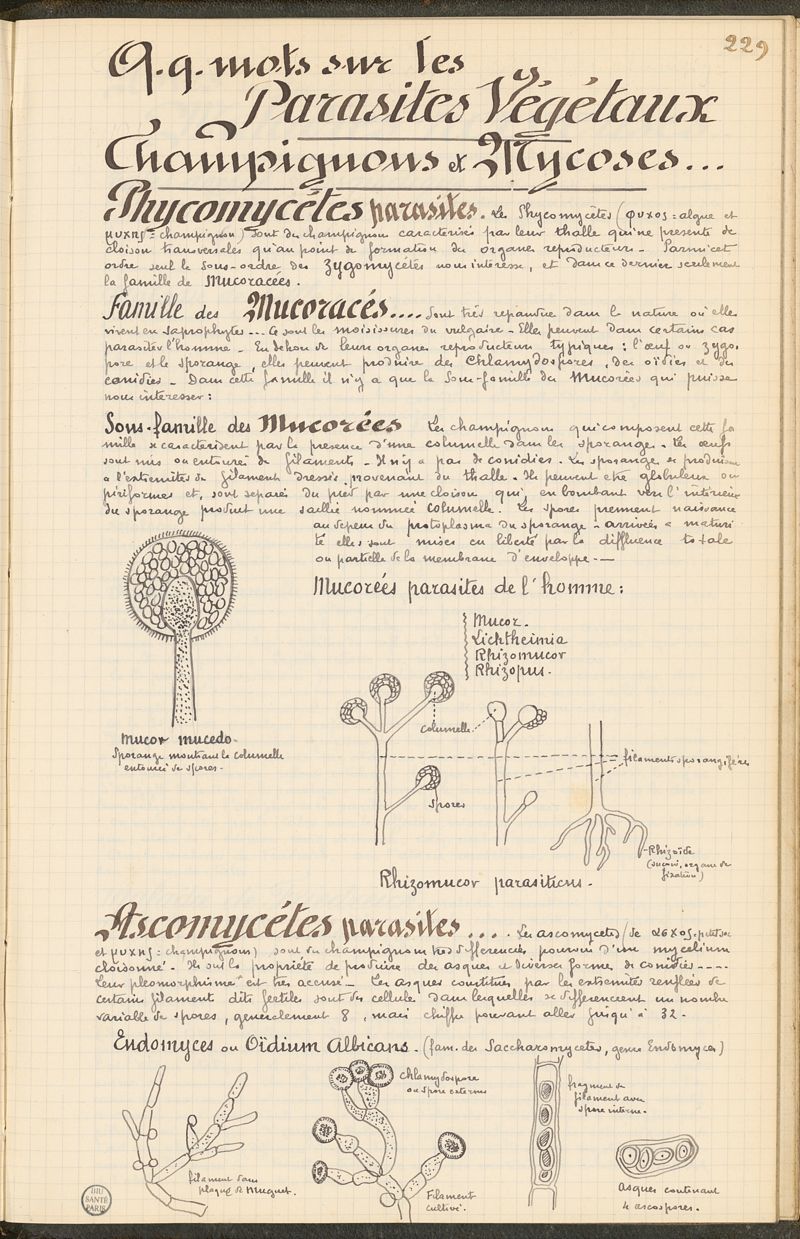 229
Q.q. mots sur les
Parasites Végétaux
Champignons et Mycoses...
Phycomycétes parasites. Les Phycomycétes (φυχος = algue et
μυχης = champignon) sont des champignons caractérisés par leur thalle qui ne presente de
cloison transversales qu'au point de formation des organes reproducteurs - Parmi cet
ordre seul le sous-ordre des Zygomycétes nous intéresse, et dans ce dernier seulement
la famille des Mucoracées.
Famille des Mucoracés.... Sont très répandues dans la nature où elles
vivent en saprophytes... Ce sont les moisissures du vulgaire - Elles peuvent dans certains cas
parasiter l'homme - En dehors de leurs organes reproducteurs typiques : l'œuf ou zygos
pore et le sporange, elles peuvent produire des Chlamydospores, des oïdies et des
conidies - Dans cette famille il n'y a que la sous-famille des Mucorées qui puisse
nous intéresser :
Sous-famille des Mucorées Les champignons qui composent cette fa
mille se caractérisent par la presence d'une columelle dans les sporange. Les œufs
sont nus ou entourés de filaments - Il n'y a pas de conidies. Les sporanges se produisent
a l'extremités de filaments dressés provenant du thalle. Ils peuvent etre globuleux ou
piriformes et, sont séparés du pied par une cloison qui, en bombant vers l'intérieur
du sporange produit une saillie nommée columelle. Les spores prennent naissance
au depens du protoplasma du sporange - arrivées a maturi
té elles sont mises en liberté par la diffluence totale
ou partielle de la membrane d'enveloppe.—
Mucorées parasites de l'homme :
Mucor.
Lichtheimia
Rhizomucor
Rhizopus.
mucor mucedo.
Sporange montrant la columelle
entourée de spores.
columelle
filaments sporangifère
spores
Rhizoïde
(suçoir, organe de
fixation)
Rhizomucor parasiticus.
Ascomycétes parasites... Les ascomycetes (de ασχος. petit sac
et μυχης : champignons) sont des champignons très différenciés pourvus d'un mycelium
cloisonné. Ils ont la propriété de produire des asques et diverses formes de conidies ----
Leur pleomorphisme est très accusé - Les asques constitués par les extremités renflées de
certains filaments dits fertiles sont des cellules dans lesquelles se differencient un nombre
variable de spores, generalement 8, mais chiffre pouvant aller jusqu'a 32 -
Endomyces ou Oïdium Albicans. (fam. des Saccharomycetes, genre Endomyces)
Chlamydospore
ou spore externes
fragment de
filament avec
spore interne.
filament dans
plaque de Muguet.
Filament
cultivé.
Asques contenant
4 ascospores.
BIU
SANTÉ
PARIS